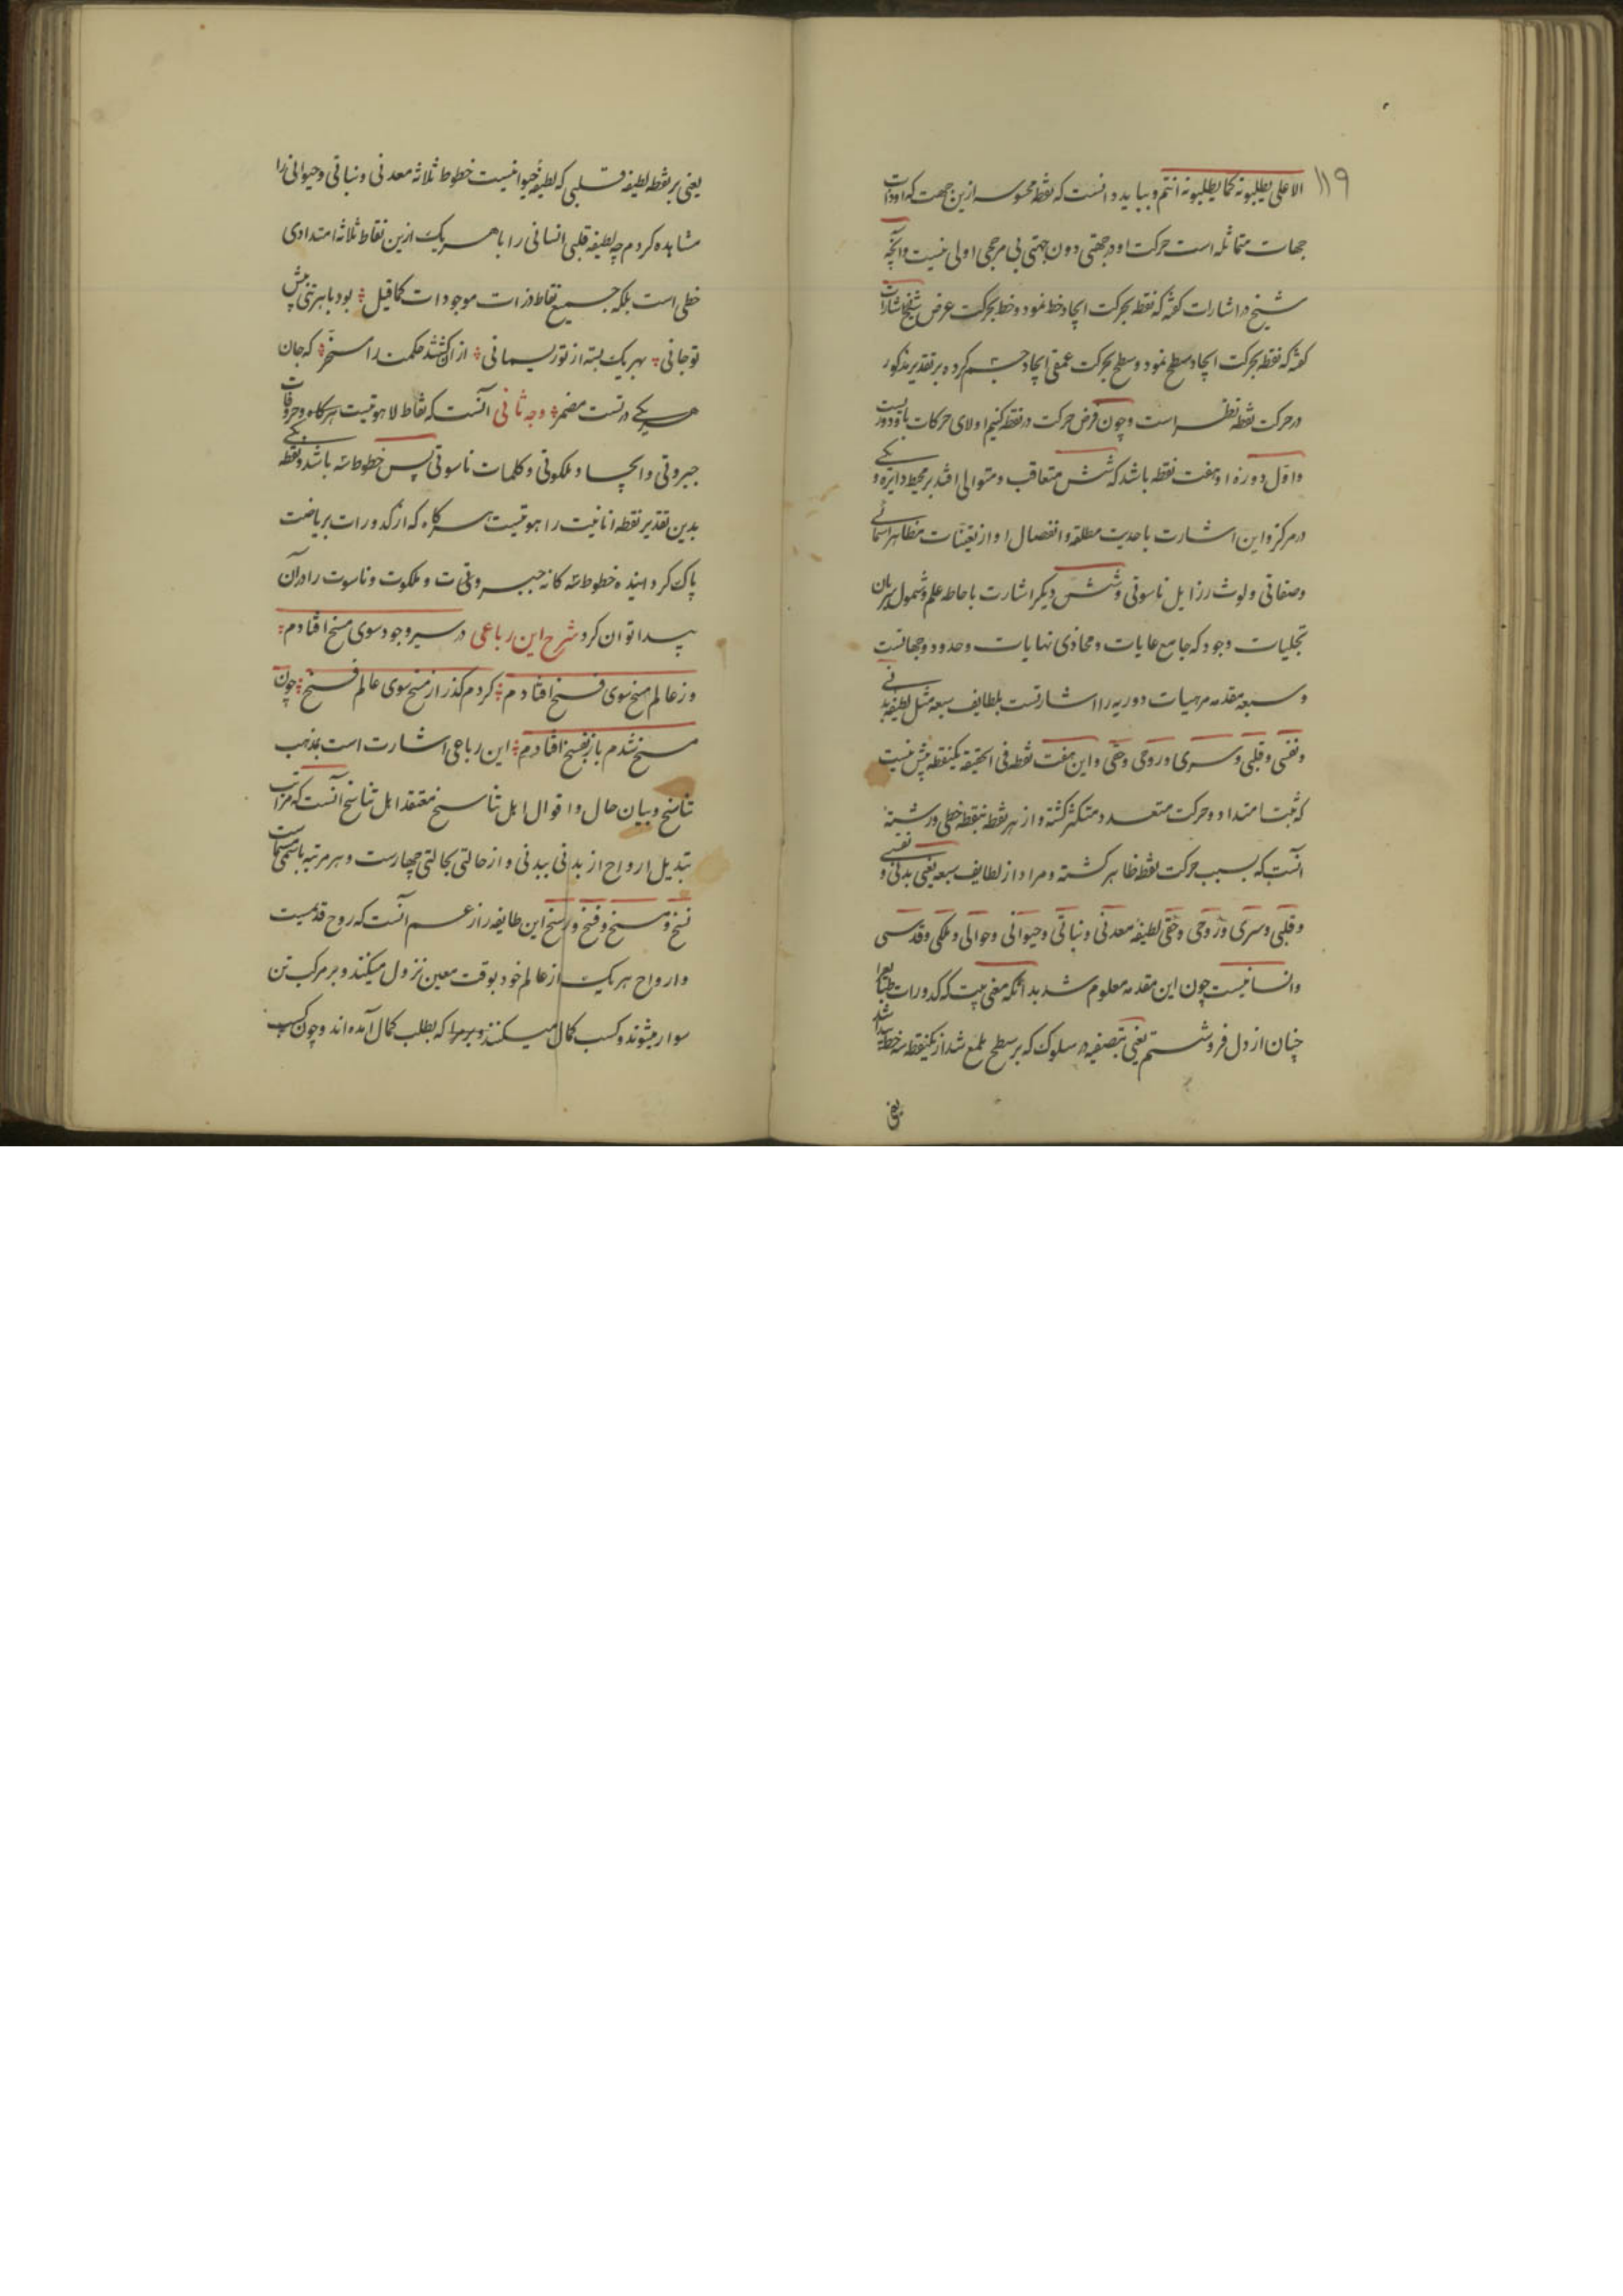 ۱۱۹
الاعلی یطلبونه کما یطلبونه انتم و بباید دانست که نقطه محسوسه ازین جهت که او ذات
جهات متماثله است حرکت او در جهتی دون جهتی بی مرجحی اولی نیست و آنچه
شیخ در اشارات گفته که نقطه بحرکت ایجاد خط نمود و خط بحرکت عرض
گفته که نقطه بحرکت ایجاد سطح نمود و سطح بحرکت عمقی ایجاد جسم کرده بر تقدیر مذکور
در حرکت نقطه نظر است و چون فرض حرکت در نقطه کنیم اولای حرکات
و اول دوره او هفت نقطه باشد که شش متعاقب و متوالی افتد بر محیط دایره و یکی
در مرکز و این اشارت باحدیت مطلقه و انفصال او از تعینات مظاهر اسمائی
وصفاتی و لوث رزایل ناسوتی و شش دیگر اشارت باحاطه علم و شمول سریان
تجلیات وجود که جامع غایات و محاذی نهایات و حدود و جهاتست
و سبعه مقدمه مرهیات دوریه را اشارتست بلطایف سبعه مثل لطیفه بدنی
و نفسی و قلبی و سری و روحی و خفی و این هفت نقطه فی الحقیقه یکنقطه بیش نیست
که امتداد و حرکت متعدد و متکثر گشته و از هر نقطه بنقطه خطی
آنست که بسبب حرکت نقطه ظاهر گشته و مراد از لطایف سبعه یعنی بدنی و نفسی
و قلبی و سری و روحی و خفی لطیفه معدنی و نباتی و حیوانی و ملکی و قدسی
و انسانیست چون این مقدمه معلوم شد بدانکه معنی بیت که کدورات
چنان از دل فرو شستم یعنی بتصفیه سلوک که بر سطح شد از یکنقطه سه خط پیدا شد
یعنی
یعنی بر نقطه لطیفه قلبی که لطیفه حیوانیست خطوط ثلاثه معدنی و نباتی و حیوانی را
مشاهده کردم چه لطیفه قلبی انسانی را با هر یک ازین نقاط ثلاثه امتدادی
خطی است بلکه جمیع نقاط ذرات موجودات کما قیل بود با هر تنی پیش
تو جانی بهر یک بسته از تو ریسمانی از آن گشتند حکمت را مسخر که جان
هر یکی در تست مضمر وجه ثانی آنست که نقاط لاهوتیست هرگاه و حروفات
جبروتی و ملکوتی و کلمات ناسوتی پس خطوط سه باشد و نقطه یکی
بدین تقدیر نقطه انانیت را هویتیست هرگاه که از کدورات بریاضت
پاک گردانیده خطوط سه گانه جبروتی و ملکوت و ناسوت را در آن
پیدا توان کرد شرح این رباعی در سیر وجود سوی مسخ افتادم
وز عالم مسخ سوی فسخ افتادم کردم گذر از مسخ سوی عالم فسخ چون
مسخ شدم باز بفسخ افتادم این رباعی اشارت است بمذهب
تناسخ و بیان حال و اقوال اهل تناسخ معتقد اهل تناسخ آنست که مراتب
تبدیل ارواح از بدنی ببدنی و از حالتی بحالتی چهارست و هر مرتبه باسمی مسماست
نسخ و مسخ و فسخ و رسخ این طایفه را زعم آنست که روح قدیمست
و ارواح هر یک از عالم خود بوقت معین نزول میکنند و بر مرکب تن
سوار میشوند و کسب کمال میکنند که بطلب کمال آمده‌اند و چون کسب